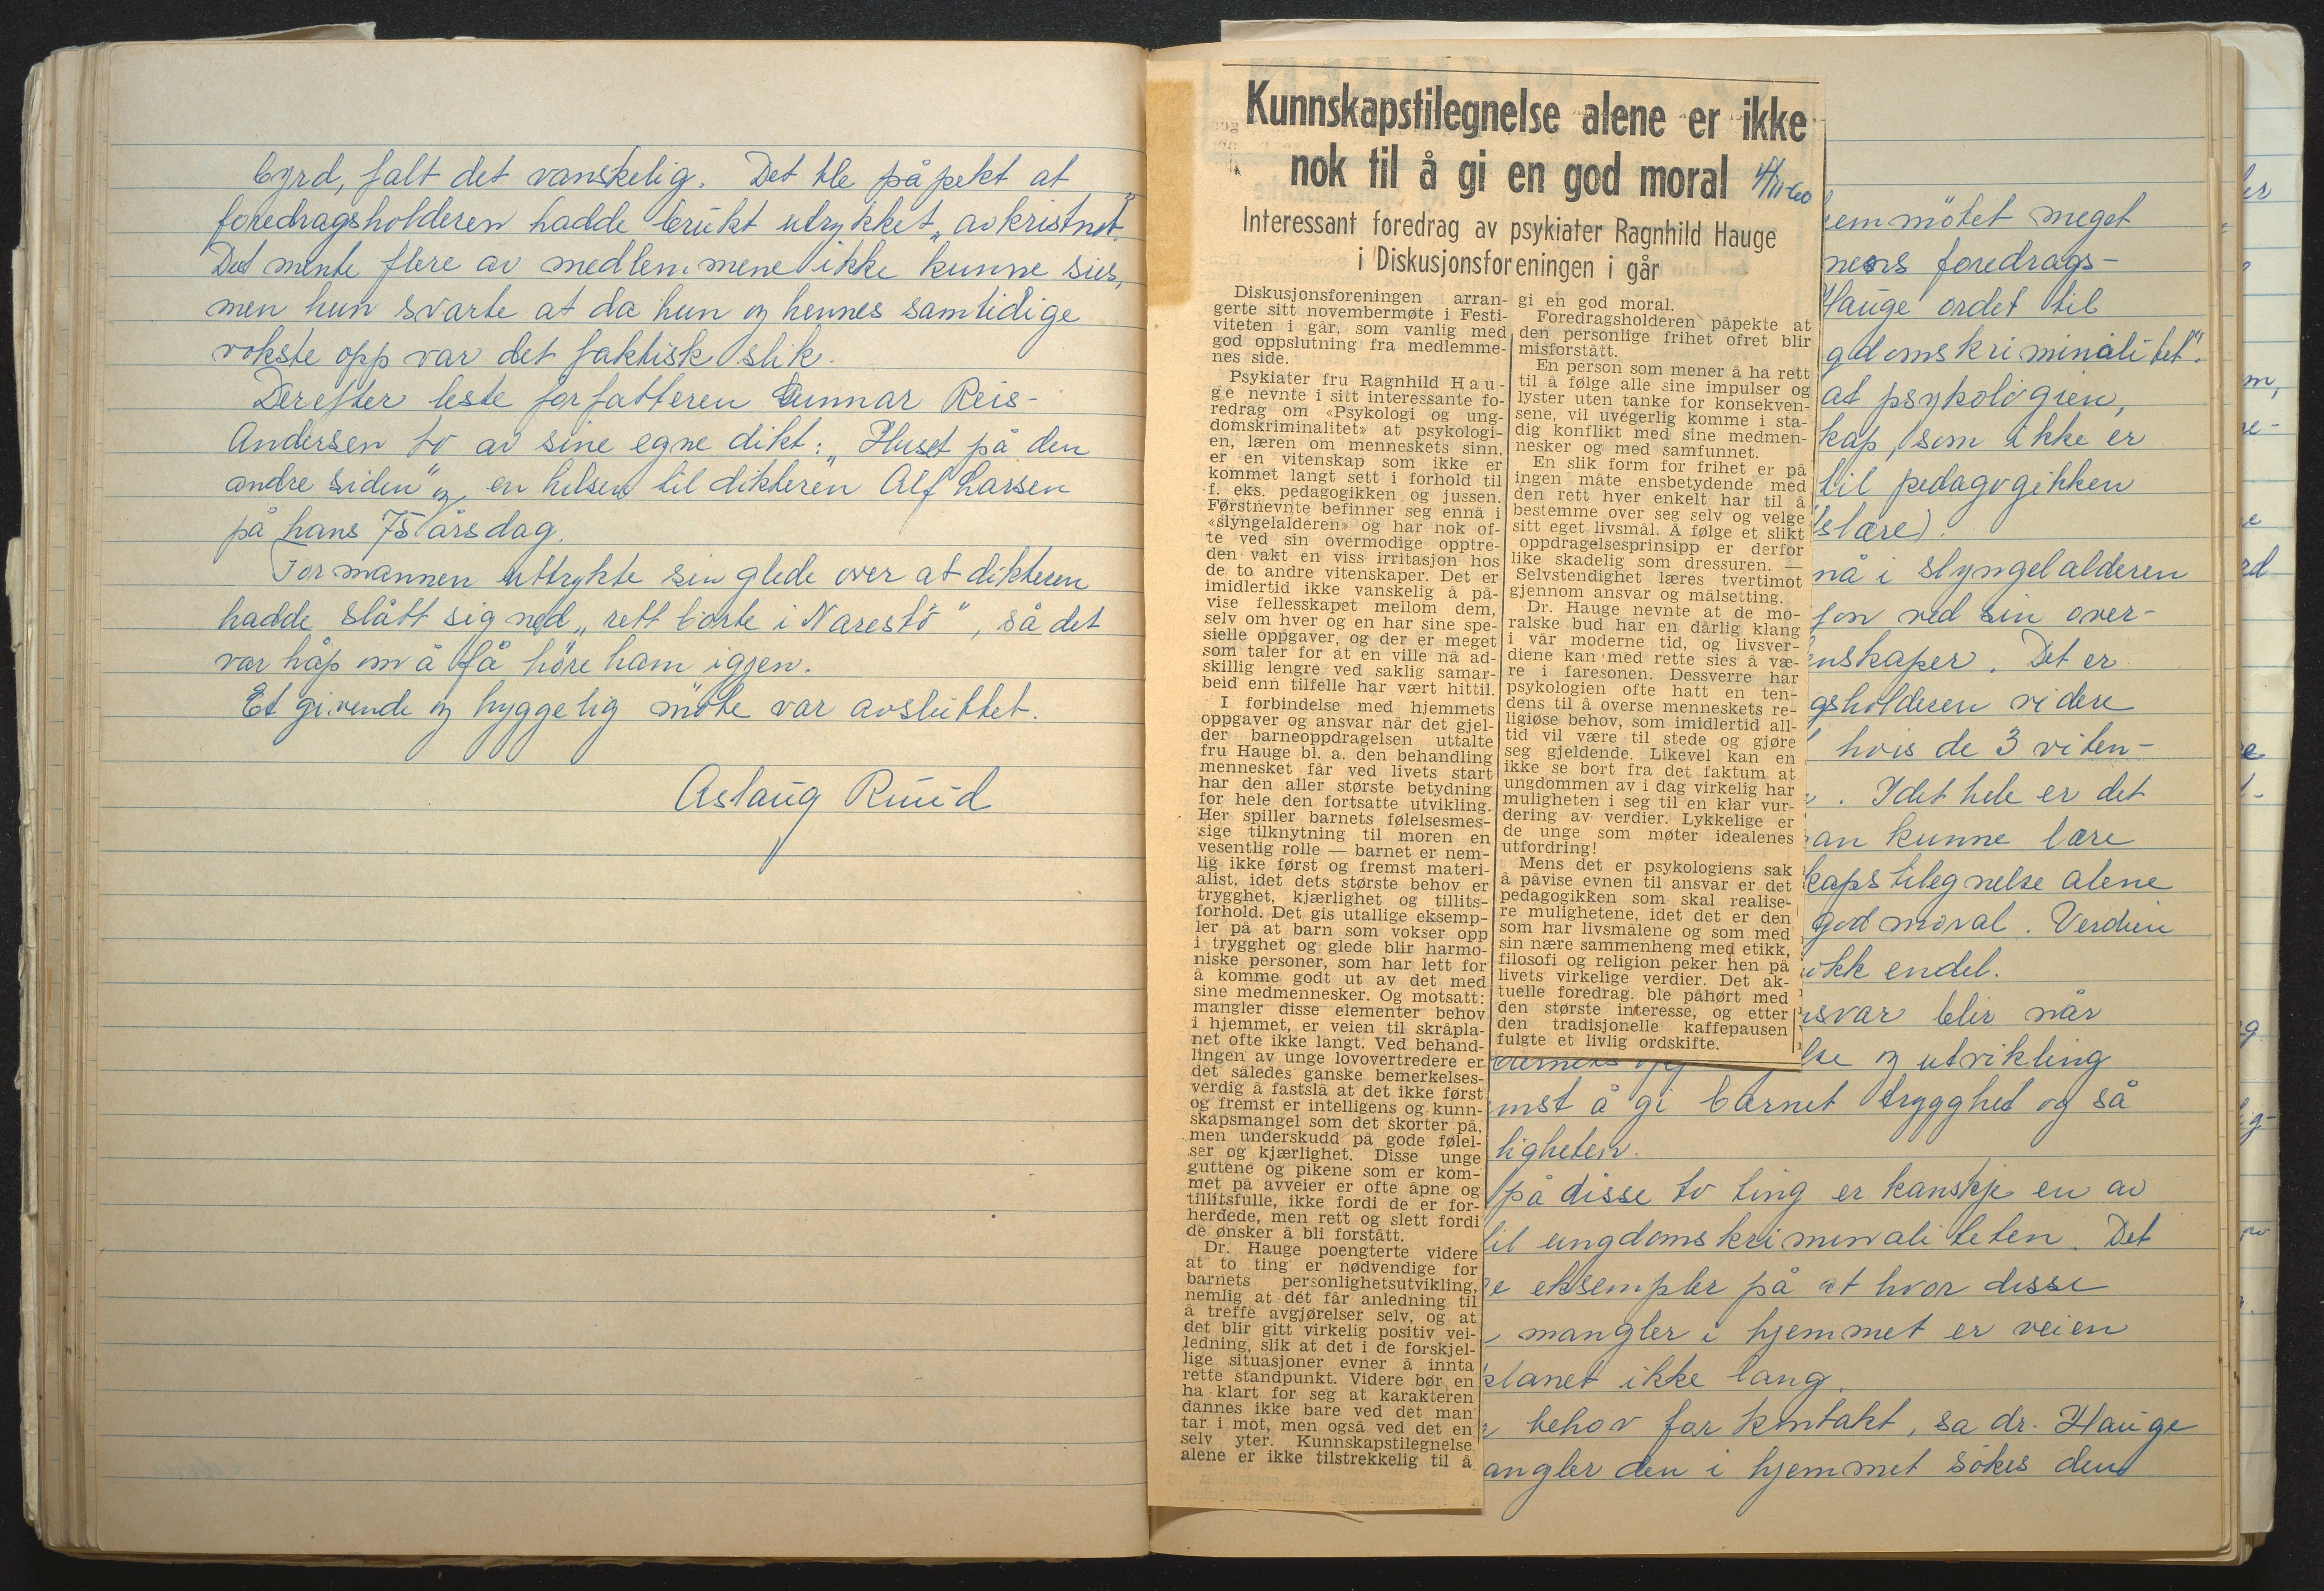 byrd, falt det vanskelig. Det ble påpekt at
foredragsholderen hadde brukt utrykket „avkristnet"
Det mente flere av medlemmene ikke kunne sies,
men hun svarte at da hun og hennes samtidige
vokste opp var det faktisk slik.
Derefter leste forfatteren Gunnar Reis-
Andersen to av sine egne dikt: „Huset på den
andre siden" og, en hilsen til dikteren Alf Larsen
på hans 75 årsdag.
Formannen uttrykte sin glede over at dikteren
hadde slått sig ned „rett borte i Narestö", så det
var håp om å få höre ham igjen.
Et givende og hyggelig möte var avsluttet.
Aslaug Ruud
Kunnskapstilegnelse alene er ikke
nok til å gi en god moral 4/11-60
Interessant foredrag av psykiater Ragnhild Hauge
i Diskusjonsforeningen i går
Diskusjonsforeningen arran-
gerte sitt novembermøte i Festi-
viteten i går, som vanlig med
god oppslutning fra medlemme-
nes side.
Psykiater fru Ragnhild Hau-
ge nevnte i sitt interessante fo-
redrag om «Psykologi og ung-
domskriminalitet» at psykologi-
en, læren om menneskets sinn,
er en vitenskap som ikke er
kommet langt sett i forhold til
f. eks. pedagogikken og jussen.
Førstnevnte befinner seg ennå i
«slyngelalderen» og har nok of-
te ved sin overmodige opptre-
den vakt en viss irritasjon hos
de to andre vitenskaper. Det er
imidlertid ikke vanskelig å på-
vise fellesskapet mellom dem,
selv om hver og en har sine spe-
sielle oppgaver, og der er meget
som taler for at en ville nå ad-
skillig lengre ved saklig samar-
beid enn tilfelle har vært hittil.
I forbindelse med hjemmets
oppgaver og ansvar når det gjel-
der barneoppdragelsen uttalte
fru Hauge bl. a. den behandling
mennesket får ved livets start
har den aller største betydning
for hele den fortsatte utvikling.
Her spiller barnets følelsesmes-
sige tilknytning til moren en
vesentlig rolle — barnet er nem-
lig ikke først og fremst materi-
alist, idet dets største behov er
trygghet, kjærlighet og tillits-
forhold. Det gis utallige eksemp-
ler på at barn som vokser opp
i trygghet og glede blir harmo-
niske personer, som har lett for
å komme godt ut av det med
sine medmennesker. Og motsatt:
mangler disse elementer behov
i hjemmet, er veien til skråpla-
net ofte ikke langt. Ved behand-
lingen av unge lovovertredere er
det således ganske bemerkelses-
verdig å fastslå at det ikke først
og fremst er intelligens og kunn-
skapsmangel som det skorter på,
men underskudd på gode følel-
ser og kjærlighet. Disse unge
guttene og pikene som er kom-
met på avveier er ofte åpne og
tillitsfulle, ikke fordi de er for-
herdede, men rett og slett fordi
de ønsker å bli forstått.
Dr. Hauge poengterte videre
at to ting er nødvendige for
barnets personlighetsutvikling,
nemlig at det får anledning til
å treffe avgjørelser selv, og at
det blir gitt virkelig positiv vei-
ledning, slik at det i de forskjel-
lige situasjoner evner å innta
rette standpunkt. Videre bør en
ha klart for seg at karakteren
dannes ikke bare ved det man
tar i mot, men også ved det en
selv yter. Kunnskapstilegnelse
alene er ikke tilstrekkelig til å
gi en god moral.
Foredragsholderen påpekte at
den personlige frihet ofret blir
misforstått.
En person som mener å ha rett
til å følge alle sine impulser og
lyster uten tanke for konsekven-
sene, vil uvegerlig komme i sta-
dig konflikt med sine medmen-
nesker og med samfunnet.
En slik form for frihet er på
ingen måte ensbetydende med
den rett hver enkelt har til å
bestemme over seg selv og velge
sitt eget livsmål. Å følge et slikt
oppdragelsesprinsipp er derfor
like skadelig som dressuren. —
Selvstendighet læres tvertimot
gjennom ansvar og målsetting.
Dr. Hauge nevnte at de mo-
ralske bud har en dårlig klang
i vår moderne tid, og livsver-
diene kan med rette sies å væ-
re i faresonen. Dessverre har
psykologien ofte hatt en ten-
dens til å overse menneskets re-
ligiøse behov, som imidlertid all-
tid vil være til stede og gjøre
seg gjeldende. Likevel kan en
ikke se bort fra det faktum at
ungdommen av i dag virkelig har
muligheten i seg til en klar vur-
dering av verdier. Lykkelige er
de unge som møter idealenes
utfordring!
Mens det er psykologiens sak
å påvise evnen til ansvar er det
pedagogikken som skal realise-
re mulighetene, idet det er den
som har livsmålene og som med
sin nære sammenheng med etikk,
filosofi og religion peker hen på
livets virkelige verdier. Det ak-
tuelle foredrag. ble påhørt med
den største interesse, og etter
den tradisjonelle kaffepausen
fulgte et livlig ordskifte.
emmötet meget
nens foredrags-
Hauge ordet til
gdomskriminalitet".
at psykologien,
kap, som ikke er
til pedagogikken
slære).
nå i slyngelalderen
jon ved sin over-
nskaper. Det er
gsholderen videre
hvis de 3 viten-
. I det hele er det
an kunne lære
kapstilegnelse alene
god moral. Verdien
ikk endel.
svar blir når
lse og utvikling
mst å gi barnet trygghet og så
ligheten.
på disse to ting er kanskje en av
til ungdomskriminaliteten. Det
e eksempler på at hvor disse
mangler i hjemmet er veien
planet ikke lang.
behov for kontakt, sa dr. Hauge
angler den i hjemmet sökes den